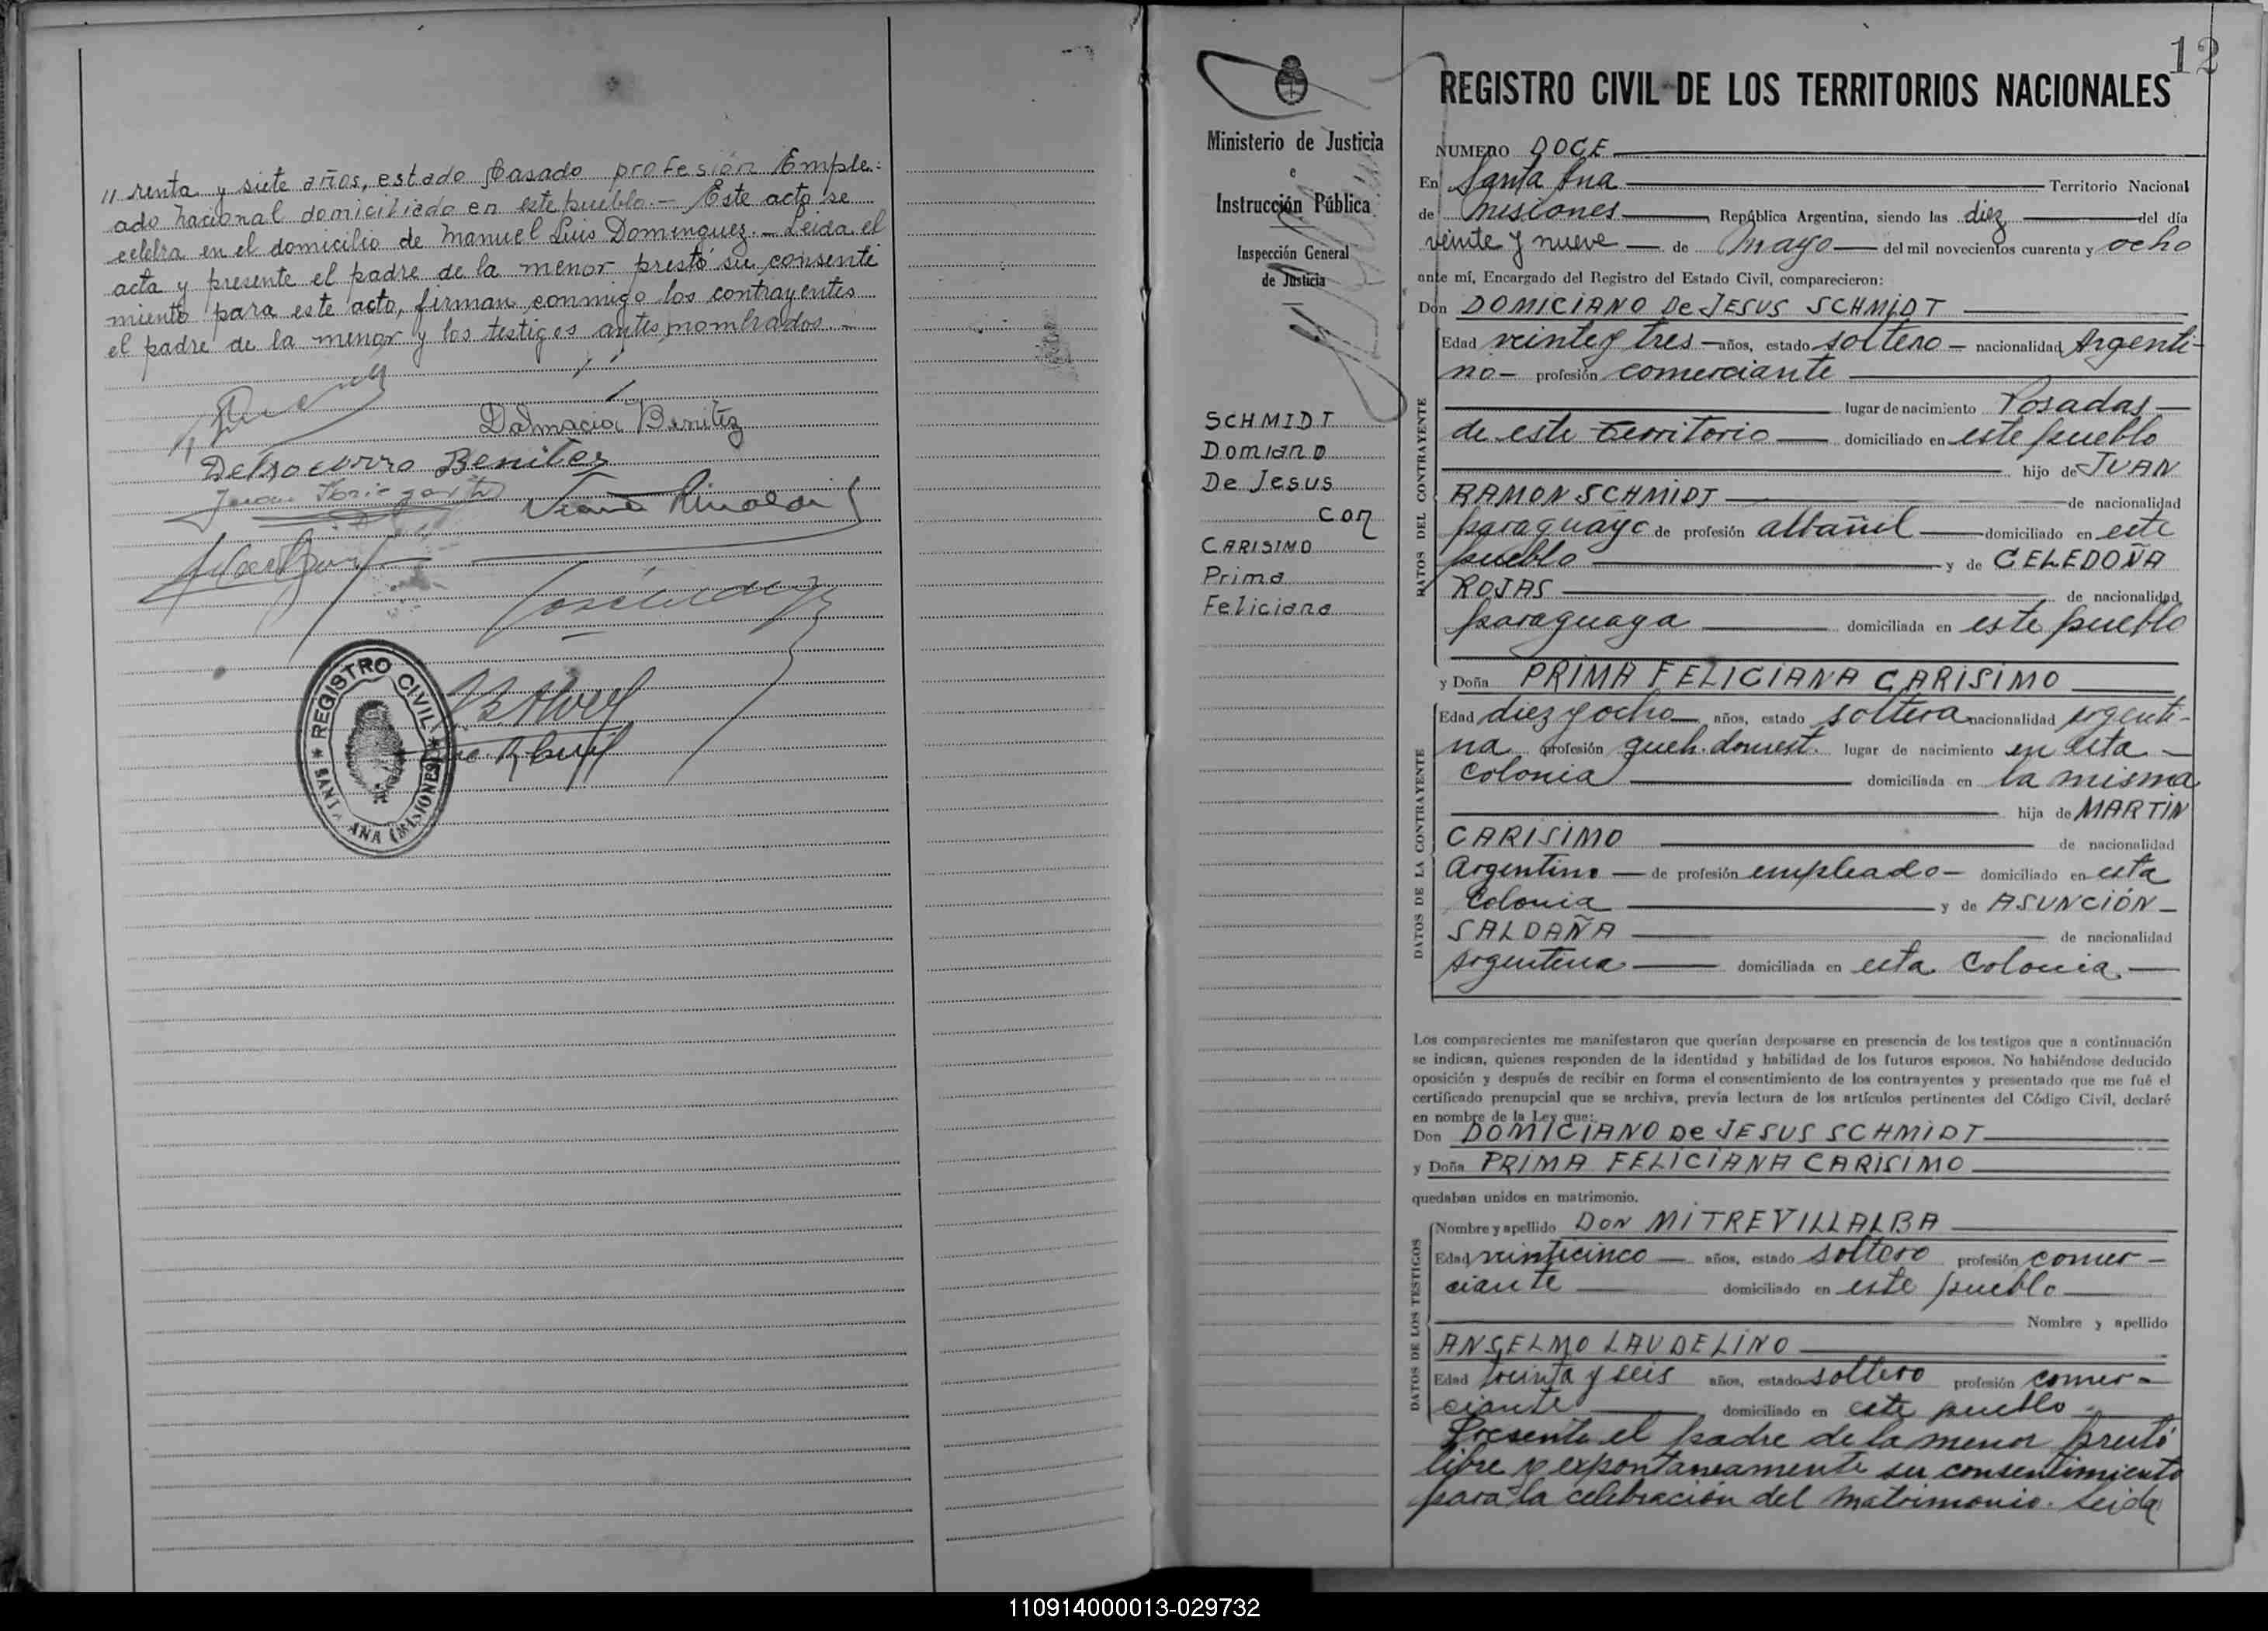 " renta y siete años, estado Casado profesión Emple-
ado nacional domiciliado en este pueblo.- Este acto se
celebra en el domicilio de Manuel Luis Dominguez.- Leida el
acta y presente el padre de la menor prestó su consenti
miento para este acto, firman conmigo los contrayentes
el padre de la menor y los testigos antes nombrados.-
Dalmacia Benitez
Del socorro Benitez
Rinaldi
REGISTRO CIVIL
SANTA ANA (MISIONES)
12
Ministerio de Justicia
e
Instrucción Pública
Inspección General
de Justicia
SCHMIDT
Domiano
De Jesus
con
CARISIMO
Prima
Feliciana
REGISTRO CIVIL DE LOS TERRITORIOS NACIONALES
NUMERO DOCE
En Santa Ana Territorio Nacional
de Misiones República Argentina, siendo las diez del día
veinte y nueve de Mayo del mil novecientos cuarenta y ocho
ante mí, Encargado del Registro del Estado Civil, comparecieron:
Don DOMICIANO De JESUS SCHMIDT
DATOS DEL CONTRAYENTE
Edad veinte y tres años, estado soltero nacionalidad Argenti-
no profesión comerciante
lugar de nacimiento Posadas
de este territorio domiciliado en este pueblo
hijo de JUAN
RAMON SCHMIDT de nacionalidad
paraguayo de profesión albañil domiciliado en este
pueblo y de CELEDOÑA
ROJAS de nacionalidad
paraguaya domiciliada en este pueblo
y Doña PRIMA FELICIANA CARISIMO
DATOS DE LA CONTRAYENTE
Edad diez y ocho años, estado soltera nacionalidad argenti-
na profesión queh. domest. lugar de nacimiento en esta
Colonia domiciliada en la misma
hija de MARTIN
CARISIMO de nacionalidad
Argentino de profesión empleado domiciliado en esta
Colonia y de ASUNCIÓN
SALDAÑA de nacionalidad
argentina domiciliada en esta Colonia
Los comparecientes me manifestaron que querían desposarse en presencia de los testigos que a continuación
se indican, quienes responden de la identidad y habilidad de los futuros esposos. No habiéndose deducido
oposición y después de recibir en forma el consentimiento de los contrayentes y presentado que me fué el
certificado prenupcial que se archiva, previa lectura de los artículos pertinentes del Código Civil, declaré
en nombre de la Ley que:
Don DOMICIANO De JESUS SCHMIDT
y Doña PRIMA FELICIANA CARISIMO
quedaban unidos en matrimonio.
DATOS DE LOS TESTIGOS
Nombre y apellido DON MITRE VILLALBA
Edad veinticinco años, estado soltero profesión comer-
ciante domiciliado en este pueblo
Nombre y apellido
ANSELMO LAUDELINO
Edad treinta y seis años, estado soltero profesión comer-
ciante domiciliado en este pueblo
Presente el padre de la menor prestó
libre y expontaneamente su consentimiento
para la celebración del matrimonio. Leida
110914000013-029732